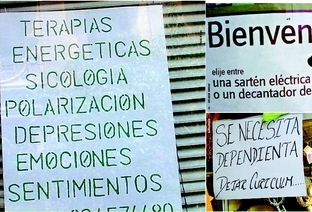 TERAPIAS
ENERGETICAS
SICOLOGIA
POLARIZACION
DEPRESIONES
EMOCIONES
SENTIMIENTOS
Bienven
elije entre
una sartén eléctrica
o un decantador de
SE NECESITA
DEPENDIENTA
DEJAR CURICULM....